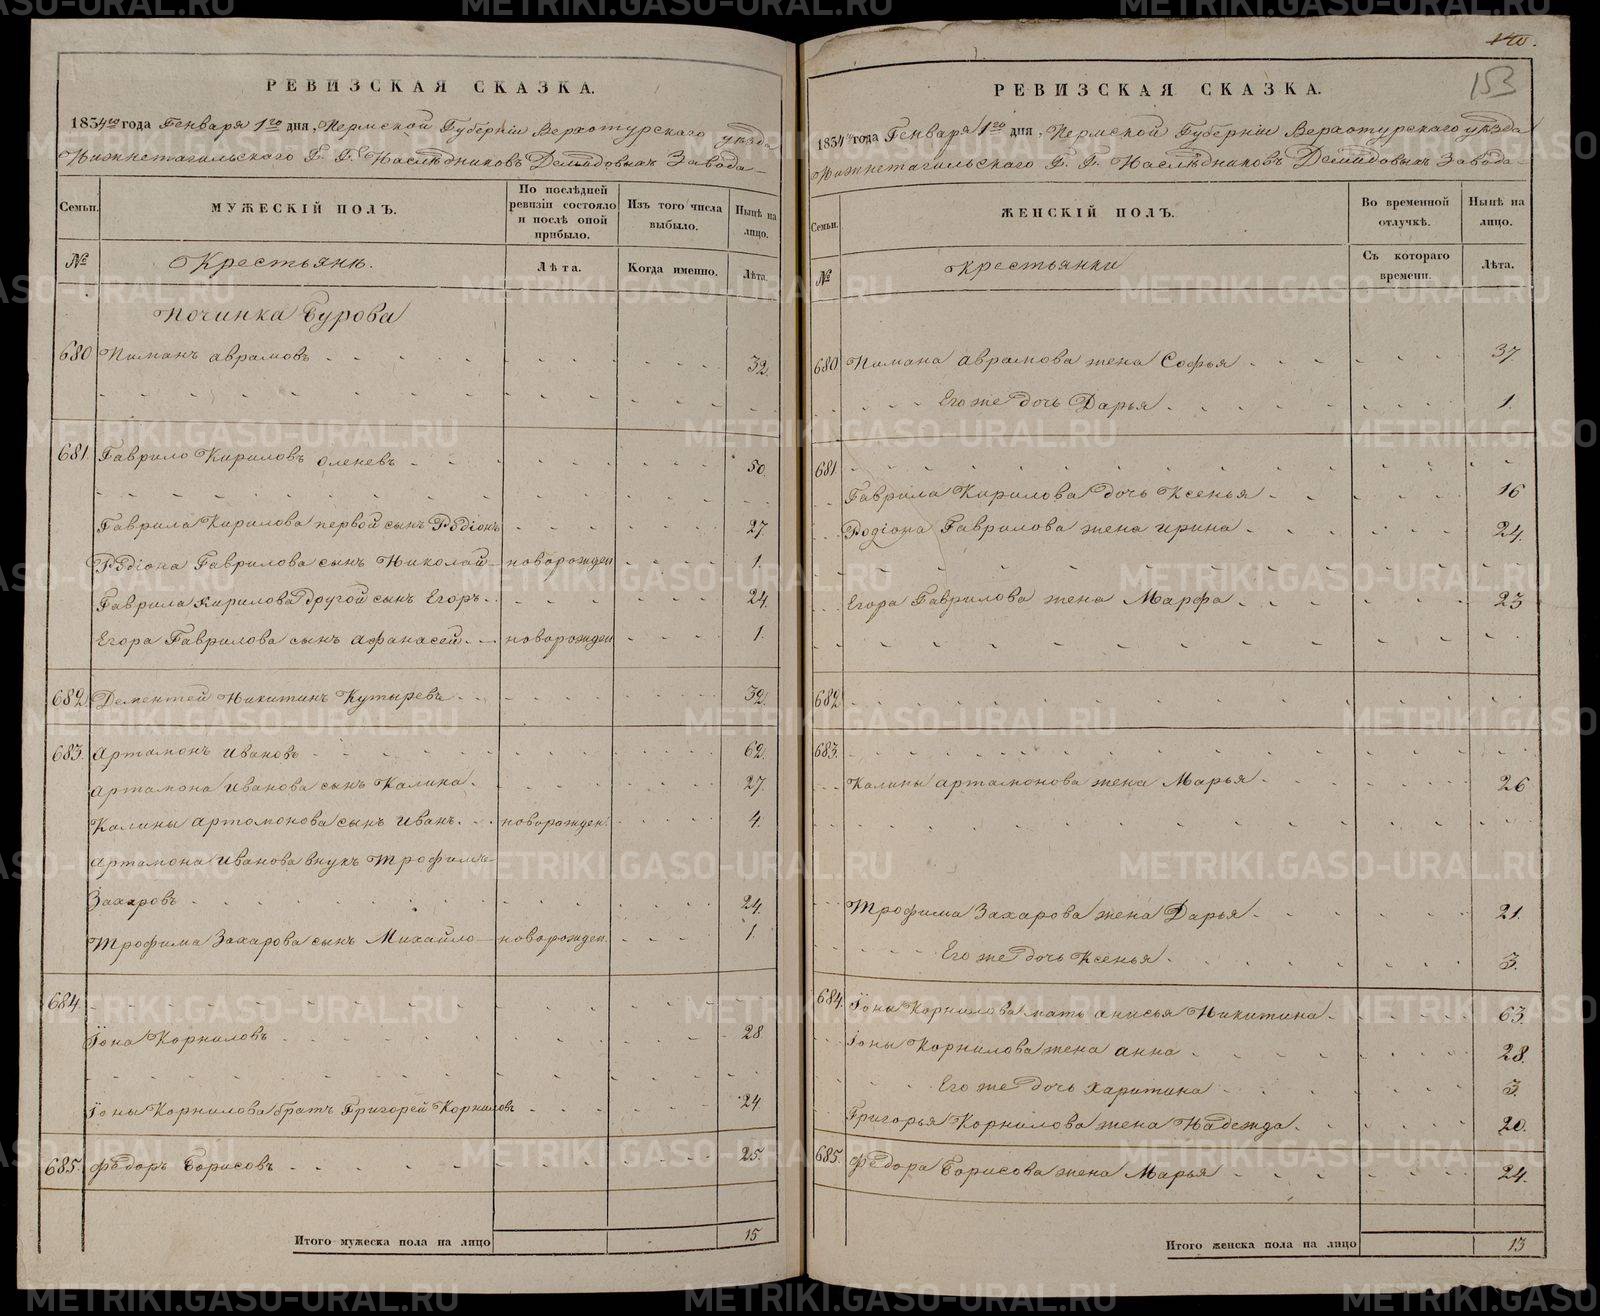 РЕВИЗСКАЯ СКАЗКА.
1834го года Генваря 1го дня, Пермской Губерніи Верхотурскаго уѣзда
Нижнетагильскаго Г. Г. Наслѣдниковъ Демидовыхъ Завода
Семьи.
МУЖЕСКІЙ ПОЛЪ.
По послѣдней ревизіи состояло и послѣ оной прибыло.
Изъ того числа выбыло.
Нынѣ на лицо.
№
Крестьянѣ.
Лѣта.
Когда именно.
Лѣта.
Починка Бурова
680 Пиманъ Аврамовъ 32.
681. Гаврило Кириловъ Оленевъ 50.
Гаврила Кирилова первой сынъ Родіонъ 27.
Родіона Гаврилова сынъ Николай новорожден 1.
Гаврила Кирилова другой сынъ Егоръ 24.
Егора Гаврилова сынъ Афанасей новорожден 1.
682. Дементей Никитинъ Кутыревъ 32.
683. Артамонъ Ивановъ 62.
Артамона Иванова сынъ Калина 27.
Калины Артамонова сынъ Иванъ новорожден. 4.
Артамона Иванова внукъ Трофимъ
Захаровъ 24.
Трофима Захарова сынъ Михайло новорожден. 1.
684.
Іона Корниловъ 28
Іоны Корнилова братъ Григорей Корниловъ 24
685. Федоръ Борисовъ 25.
Итого мужеска пола на лицо 15
140.
153
РЕВИЗСКАЯ СКАЗКА.
1834го года Генваря 1го дня, Пермской Губерніи Верхотурскаго уѣзда
Нижнетагильскаго Г. Г. Наслѣдниковъ Демидовыхъ Завода
Семьи.
ЖЕНСКІЙ ПОЛЪ.
Во временной отлучкѣ.
Нынѣ на лицо.
№
Крестьянки
Съ котораго времени.
Лѣта.
680. Пимана Аврамова жена Софья 37
Его же дочь Дарья 1.
681
Гаврила Кирилова дочь Ксенья 16
Родіона Гаврилова жена Ирина 24.
Егора Гаврилова жена Марфа 23
682
683.
Калины Артамонова жена Марья 26
Трофима Захарова жена Дарья 21.
Его же дочь Ксенья 3.
684. Іоны Корнилова мать Анисья Никитина 63.
Іоны Корнилова жена Анна 28.
Его же дочь Харитина 3.
Григорья Корнилова жена Надежда 20.
685. Федора Борисова жена Марья 24.
Итого женска пола на лицо 13
METRIKI.GASO-URAL.RU